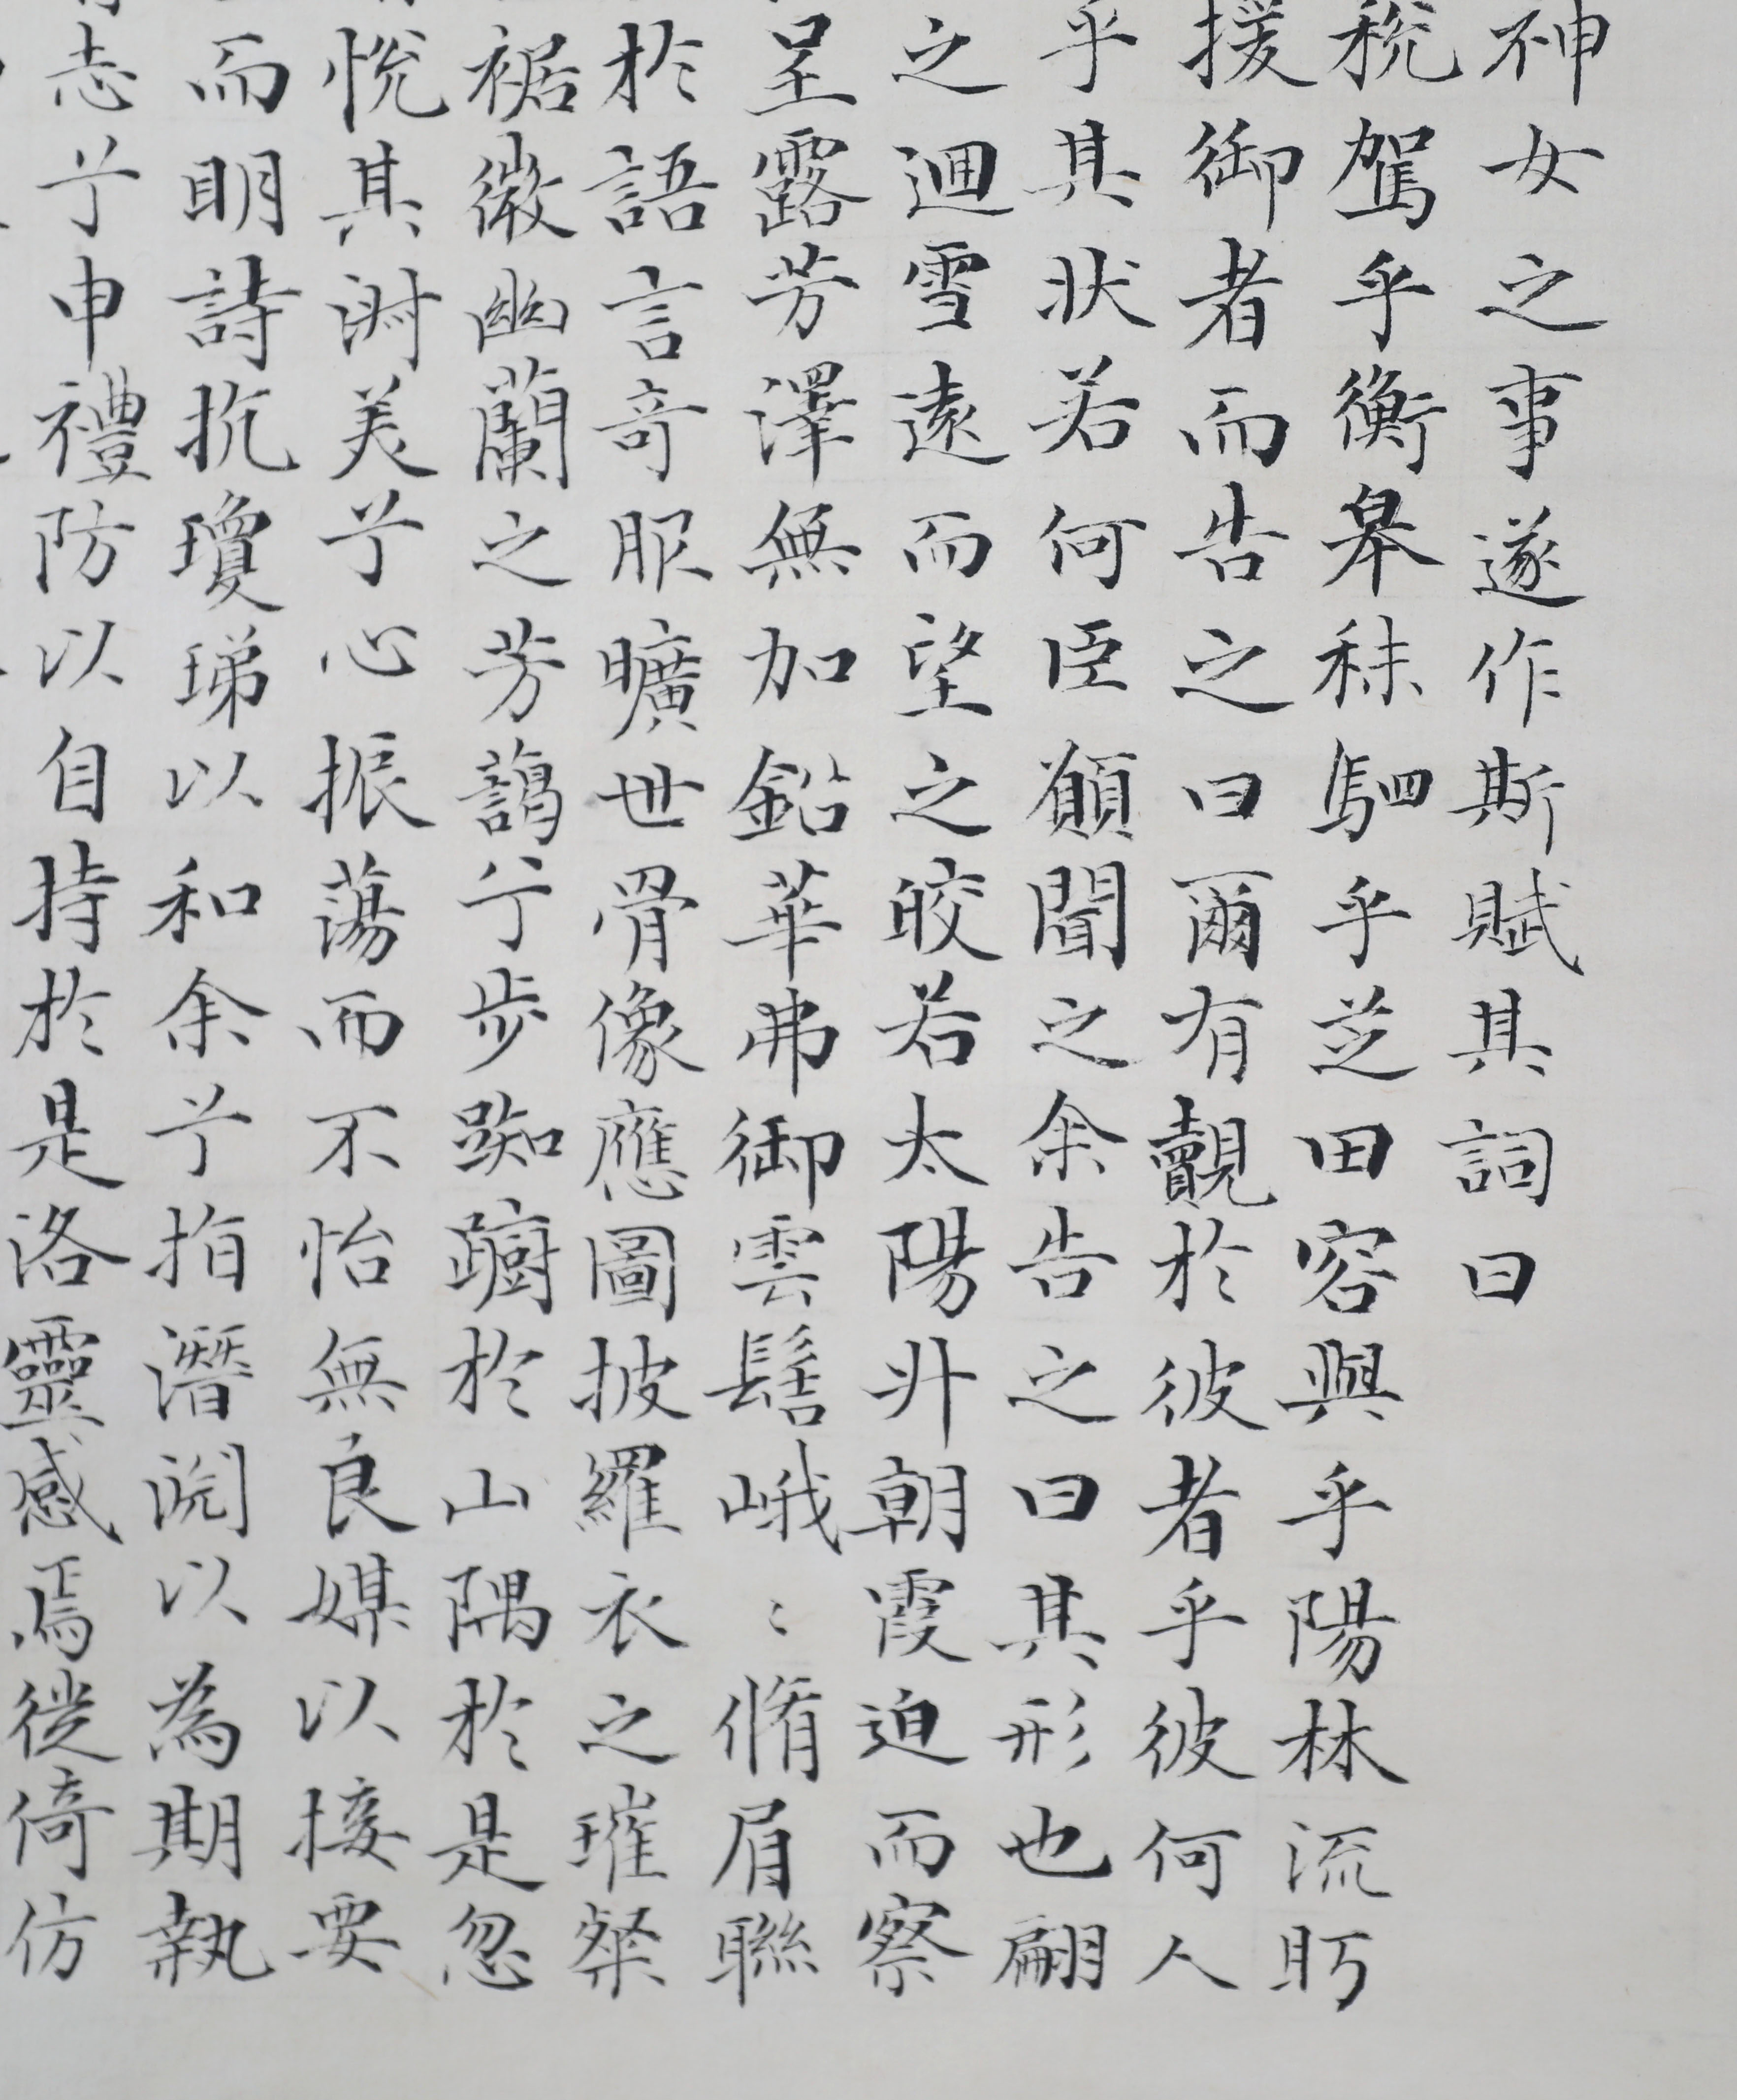 神女之事遂作斯賦其詞曰
稅駕乎衡皋秣駟乎芝田容與乎陽林流眄
援御者而告之曰爾有覿於彼者乎彼何人
乎其狀若何臣願聞之余告之曰其形也翩
之迴雪遠而望之皎若太陽升朝霞迫而察
呈露芳澤無加鉛華弗御雲髻峨〻脩眉聯
於語言奇服曠世骨像應圖披羅衣之璀粲
裾微幽蘭之芳藹兮步踟躕於山隅於是忽
悅其淑美兮心振蕩而不怡無良媒以接要
而明詩抗瓊珶以和余兮指潛淵以為期執
志兮申禮防以自持於是洛靈感焉徙倚仿